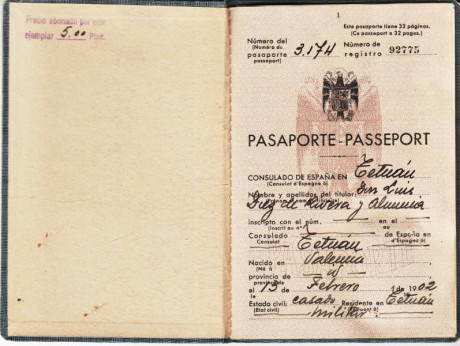 Precio abonado por este
ejemplar 5.00 Ptas.
1
Este pasaporte tiene 32 páginas.
(Ce passeport a 32 pages.)
Número del
(Numéro du
pasaporte
passeport)
3.174
Número de
registro 92775
PASAPORTE-PASSEPORT
CONSULADO DE ESPAÑA EN Tetuán
(Consulat d'Espagne à)
Nombre y apellidos del titular: Don Luis
Diez de Rivera y Almunia
inscripto con el núm. en el
(Inscrit au n.º
Consulado Tetuán de España en
Consulat d'Espagne à)
Nacido en Valencia
(Né à
provincia de id
el 13 de Febrero de 1902
Estado civil: casado Residente en Tetuán
(Etat civil)
militar